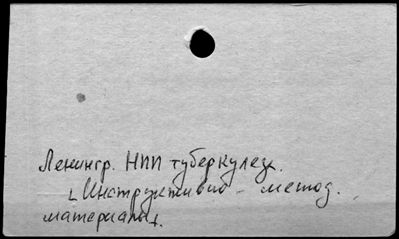 Ленингр. НИИ туберкулеза.
Инструктивно - метод.
материалы.